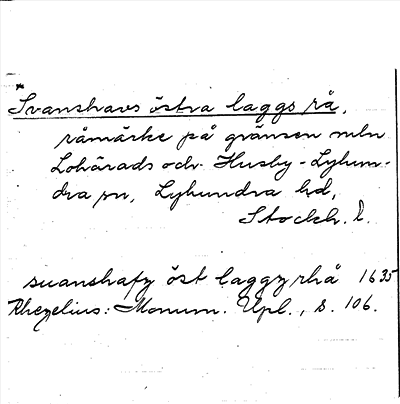 *Svanshavs östra laggs rå,
råmärke på gränsen mln
Lohärads och Husby-Lyhun-
dra sn, Lyhundra hd,
Stockh. l.
suanshafz öst laggz rhå 1635
Rhezelius: Monum. Upl., s. 106.